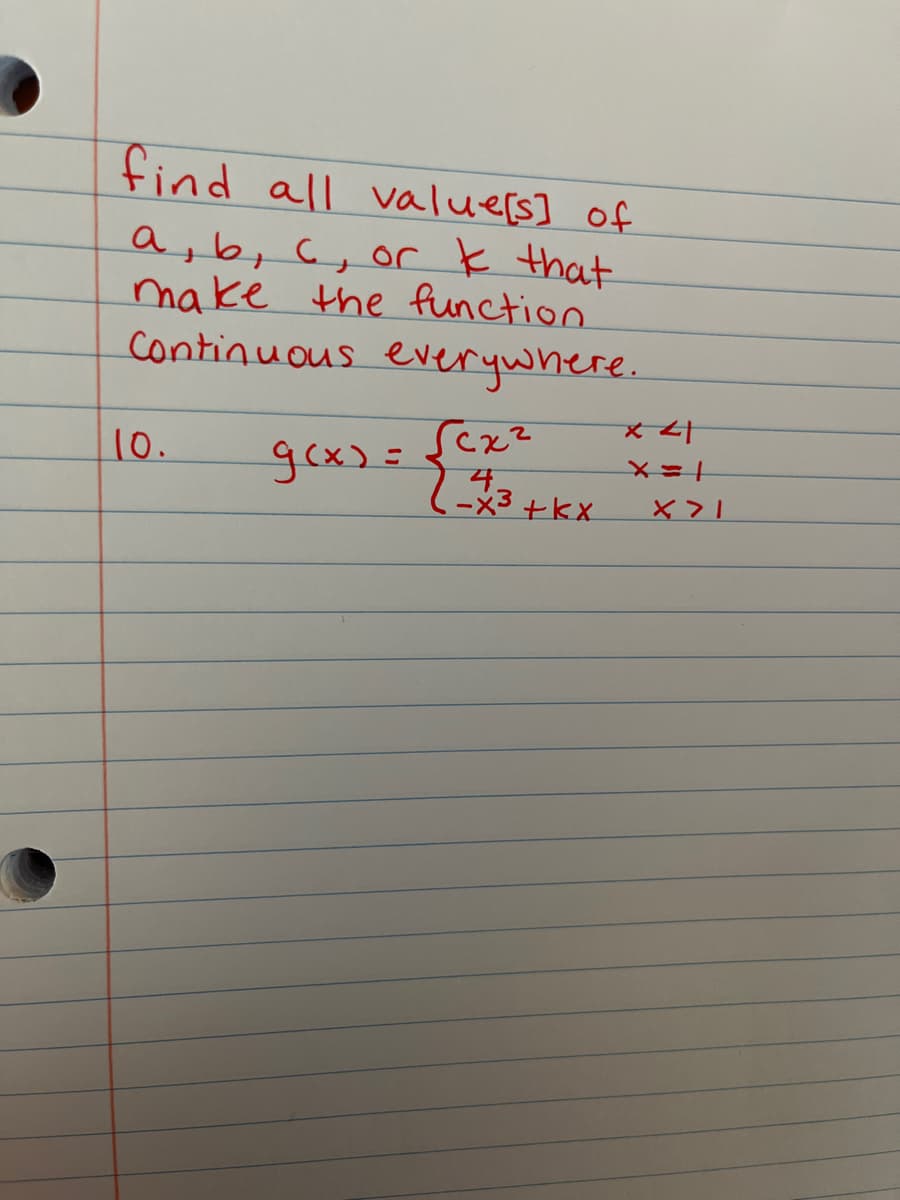 find all value[s] of
a, b, c, or k that
make the function
Continuous everywhere.
10. g(x) = { cx² x < 1
4 x = 1
-x³ + kx x > 1